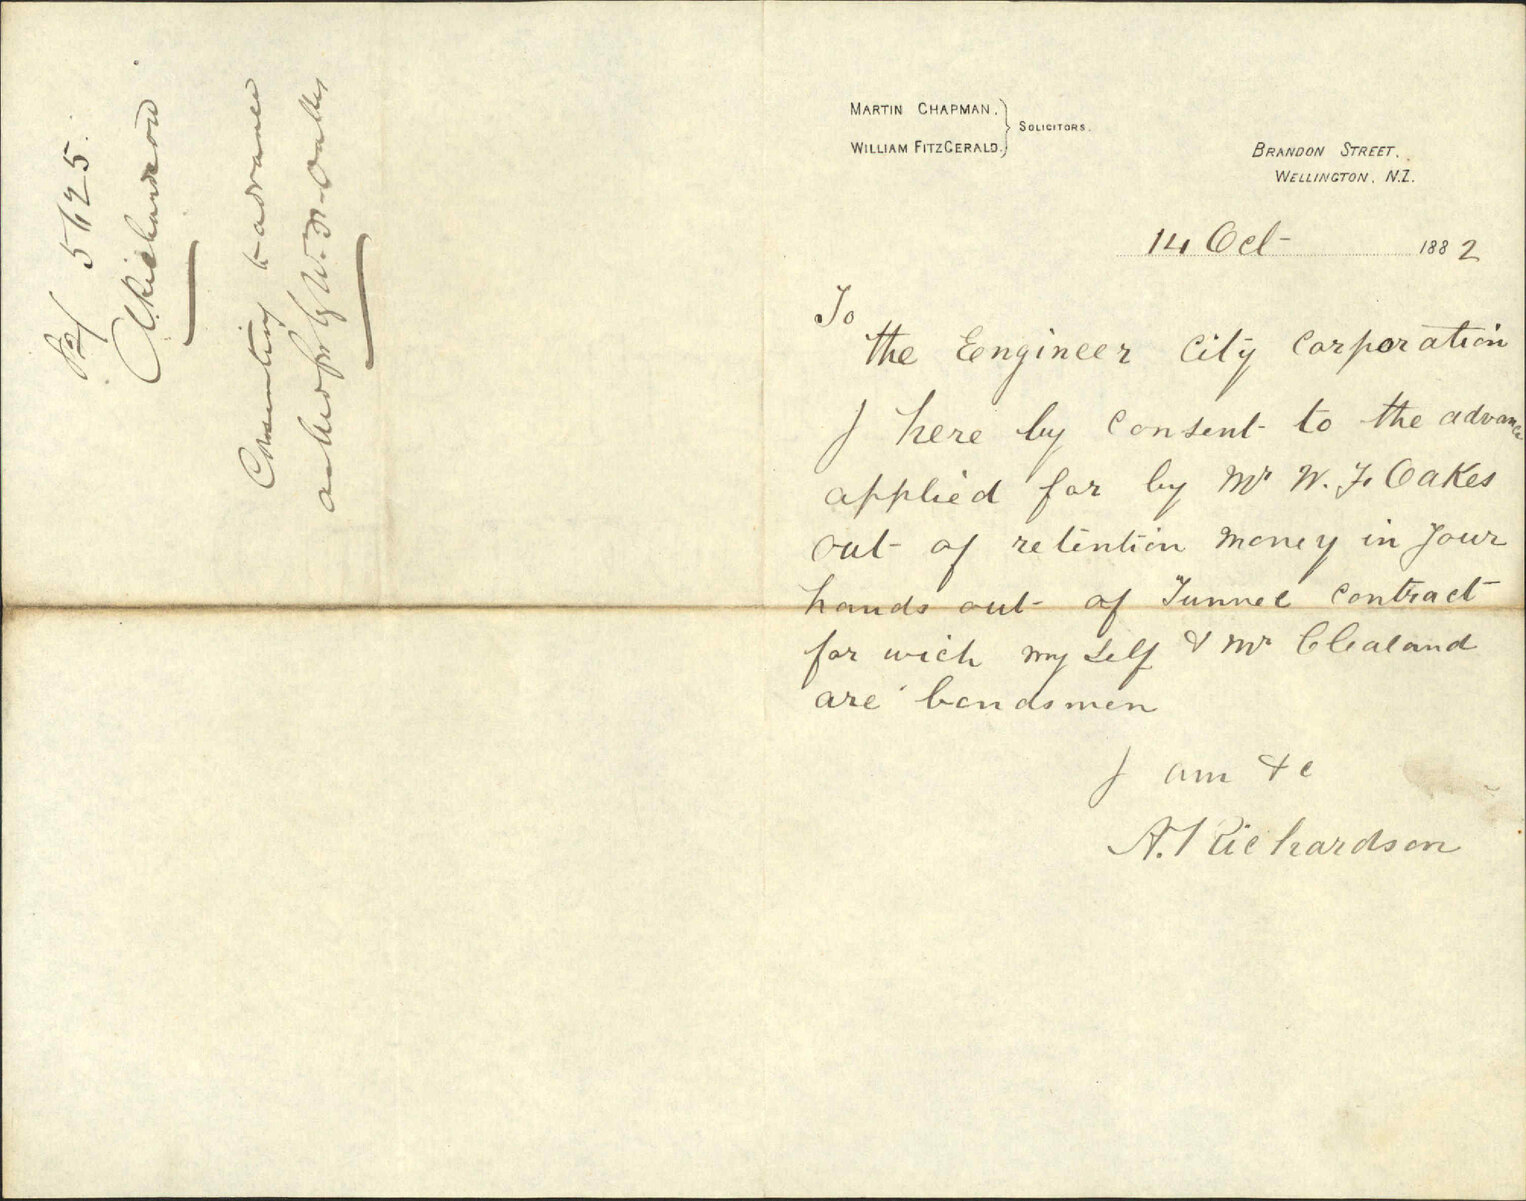 MARTIN CHAPMAN.
WILLIAM FITZGERALD.
SOLICITORS.
BRANDON STREET,
WELLINGTON, N.Z.
14 Oct 1882
To
the Eengineer City Corporation
I here by Consent to the advance
applied for by Mr W. F. Oakes
out of retention money in your
hands out of Tunnel contract
for wich my self & Mr Clealand
are bondsmen
I am &c
A. Richardson
A. Richardson
Consenting to advance
asked for by W. F. Oakes